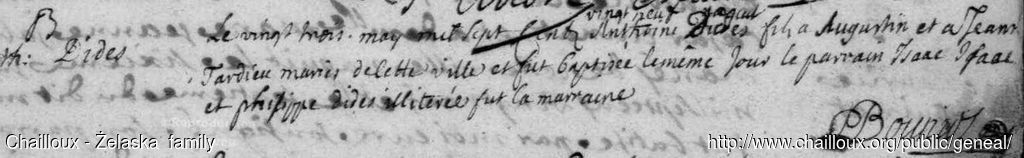 B
th: Dides
Le vingt trois may mil sept cent vingt neuf naquit Anthoine Dides fils a Augustin et a Jeanne
Tardieu mariés de cette ville et fut baptisée le même Jour le parrain Isaac Isaac
et philippe dides illiterée fut la marraine
Chailloux - Żelaska family
http://www.chailloux.org/public/geneal/